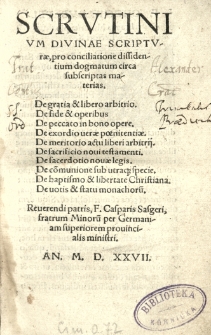 SCRVTINI
VM DIVINAE SCRIPTV
ræ, pro conciliatione dissiden
tium dogmatum circa
subscriptas ma
terias.
De gratia & libero arbitrio.
De fide & operibus
De peccato in bono opere.
De exordio ueræ pœnitentiæ.
De meritorio actu liberi arbitrij.
De sacrificio noui testamenti.
De sacerdotio nouæ legis.
De cõmunione sub utraq; specie.
De baptismo & libertate Christiana.
De uotis & statu monachorũ.
Reuerendi patris, F. Casparis Sasgeri,
fratrum Minorũ per Germani
am superiorem prouinci-
alis ministri.
AN. M. D. XXVII.
Cim. Q. 72